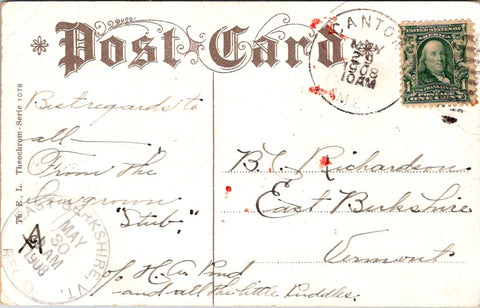 Post Card
CANTON
MAY
29
1908
10 AM
ME.
UNITED STATES OF AMERICA
FRANKLIN
POSTAGE
ONE CENT
Th. E. L. Theochrom-Serie 1078
Best regards to
all—
From the
Ingrown
"Stub".
of H.A. Pond
and all the little Puddles.
B.L. Richardson
East Berkshire
Vermont
EAST BERKSHIRE, VT.
MAY
30
AM
1908
REC'D